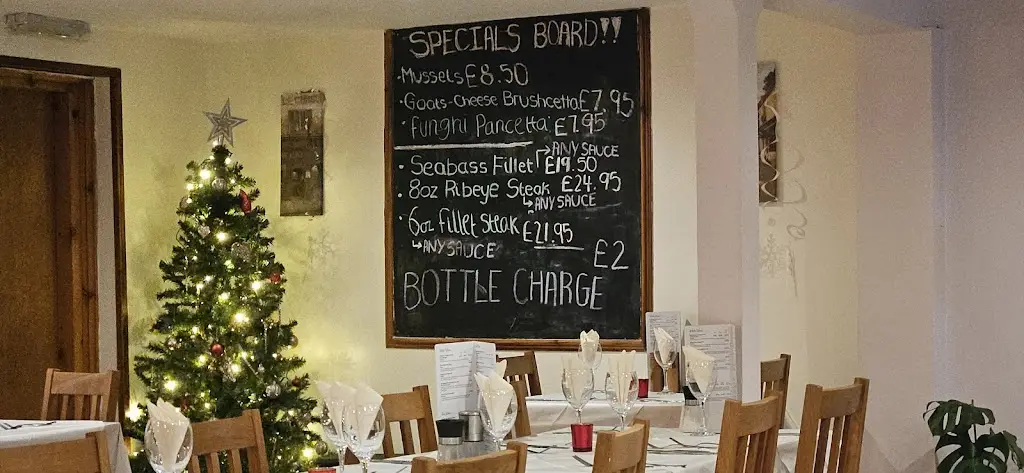 SPECIALS BOARD!!
·Mussels £8.50
·Goats-Cheese Brushcetta £7.95
·Funghi Pancetta £7.95
→ANY SAUCE
·Seabass Fillet £19.50
·8oz Ribeye Steak £24.95
↳ANY SAUCE
·6oz Fillet Steak £21.95
↳ANY SAUCE
£2
BOTTLE CHARGE